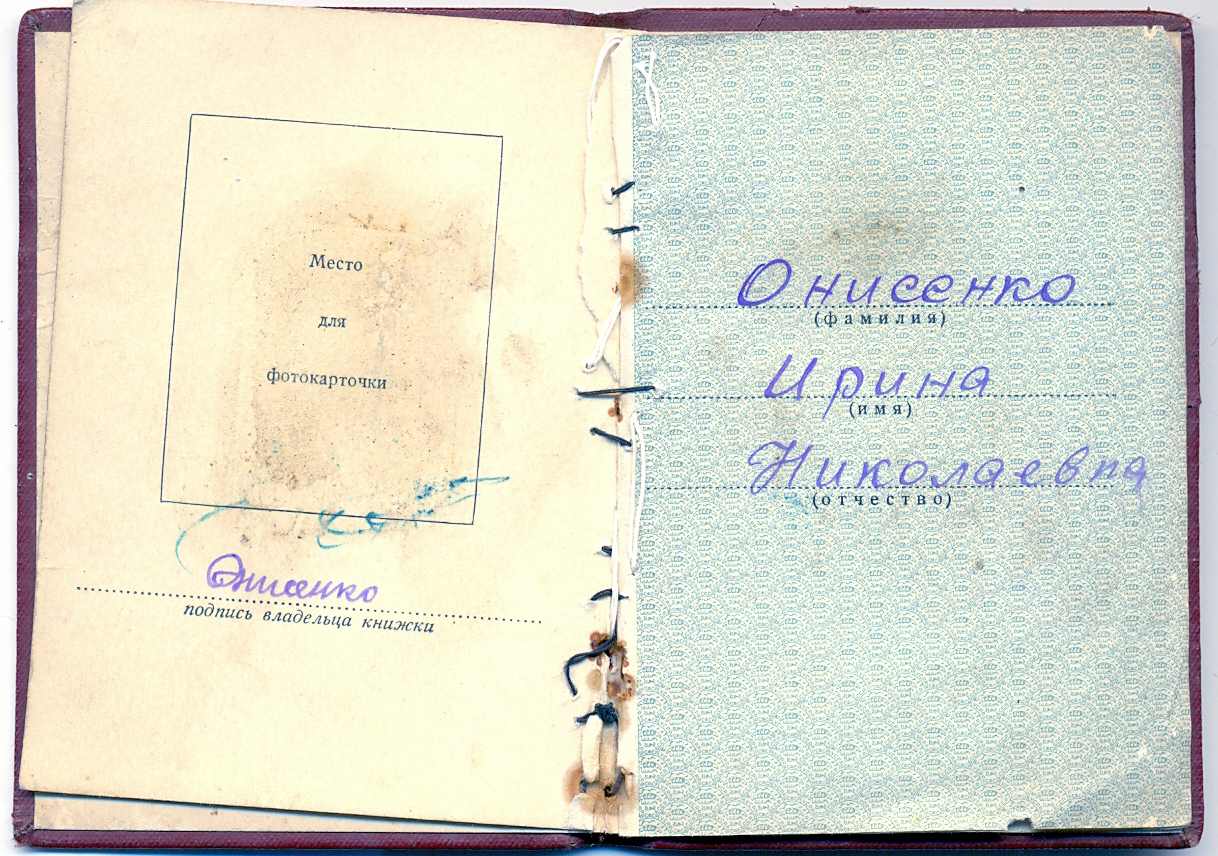 Место
для
фотокарточки
Онисенко
подпись владельца книжки
Онисенко
(фамилия)
Ирина
(имя)
Николаевна
(отчество)